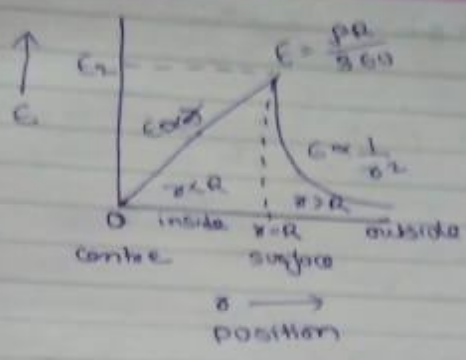 E = ρR / 3ε0
E
E ∝ r
E ∝ 1/r²
r < R
r > R
O inside r=R outside
centre surface
r →
position